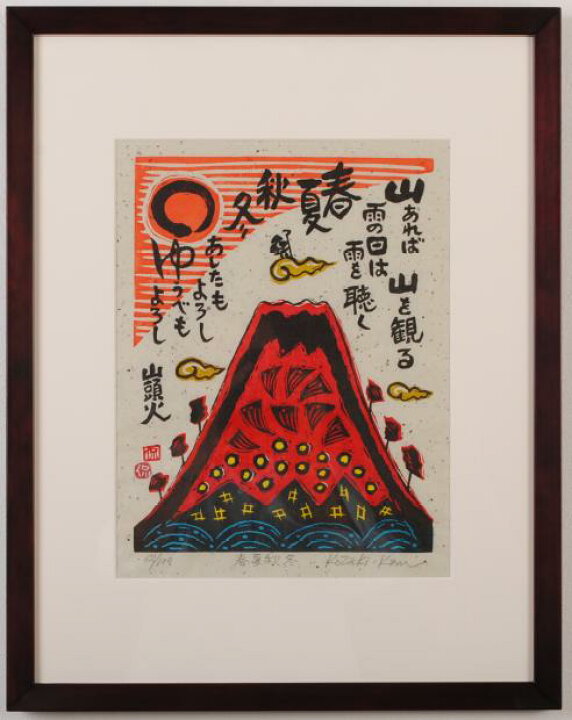 山あれば 山を観る
雨の日は
雨を聴く
春
夏
秋
冬
あしたも
よろし
ゆうべも
よろし
山頭火
春夏秋冬
Kozaki Kan